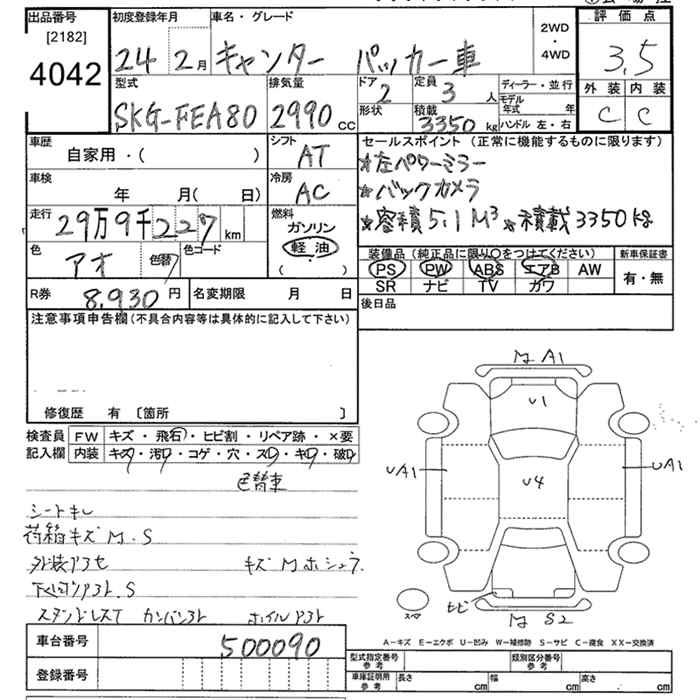 出品番号
[2182]
4042
初度登録年月
24 2月
車名・グレード
キャンター パッカー車
2WD
・
4WD
評価点
3.5
外装 内装
C C
型式
SKG-FEA80
排気量
2990 cc
ドア 2
形状
定員 3 人
積載 3350 kg
ディーラー・並行
モデル年式 年
ハンドル 左・右
車歴
自家用・( )
シフト
AT
車検
年 月( 日)
冷房
AC
走行
29万9千227 km
燃料
ガソリン
軽油
( )
色
アオ
色替
色コード
R券 8,930 円
名変期限 月 日
セールスポイント (正常に機能するものに限ります)
★左パワーミラー
★バックカメラ
★容積5.1M³ ★積載3350kg
装備品 (純正品に限り〇をつけてください)
PS PW ABS エアB AW
SR ナビ TV ガワ
新車保証書
有・無
後日品
注意事項申告欄 (不具合内容等は具体的に記入して下さい)
修復歴 有 〔箇所 〕
検査員記入欄
FW キズ・飛石・ヒビ割・リペア跡・×要
内装 キズ・汚レ・コゲ・穴・スレ・キレ・破レ
色替車
シートキレ
荷箱キズM.S
外装アセ キズMホシュラ
下回りアト.S
カンバンアト ホイルアト
M A1
U1
UA1
U4
UA1
ヒビ
スペア
M S2
A-キズ E-エクボ U-凹み W-補修跡 S-サビ C-腐食 XX-交換済
車台番号
500090
登録番号
型式指定番号 参考
類別区分番号 参考
車庫証明用 参考
長さ cm
幅 cm
高さ cm